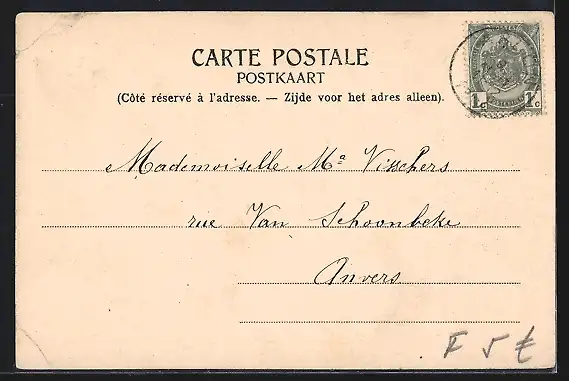 CARTE POSTALE
POSTKAART
(Côté réservé à l'adresse. — Zijde voor het adres alleen).
Mademoiselle Mª Visschers
rue Van Schoonbeke
Anvers
1c 1c
F 5 €